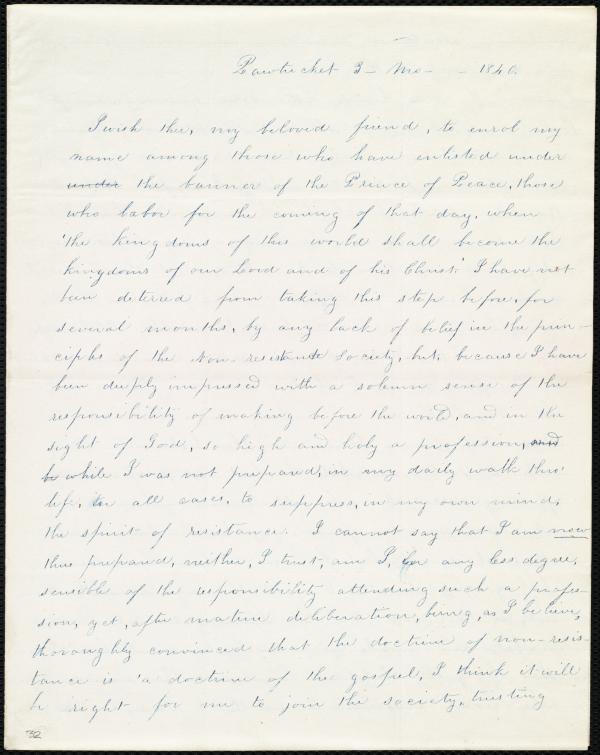 Pawtucket 3 - Mo - - 1840.
I wish thee, my beloved friend, to enrol my
name among those who have enlisted under
under the banner of the Prince of Peace, those
who labor for the coming of that day, when
'the kingdoms of this world shall become the
kingdoms of our Lord and of his Christ.' I have not
been deterred from taking this step before, for
several months, by any lack of belief in the prin-
ciples of the Non-resistants Society, but, because I have
been deeply impressed with a solemn sense of the
responsibility of making before the world, and in the
sight of God, so high and holy a profession, and
be while I was not prepared, in my daily walk thro'
life, in all cases, to suppress, in my own mind,
the spirit of resistance. I cannot say that I am now
thus prepared, neither, I trust, am I, in any less degree,
sensible of the responsibility attending such a profes-
sion, yet, after mature deliberation, being, as I believe,
thoroughly convinced that the doctrine of non-resis-
tance is 'a doctrine of the gospel, I think it will
be right for me to join the society, trusting
32